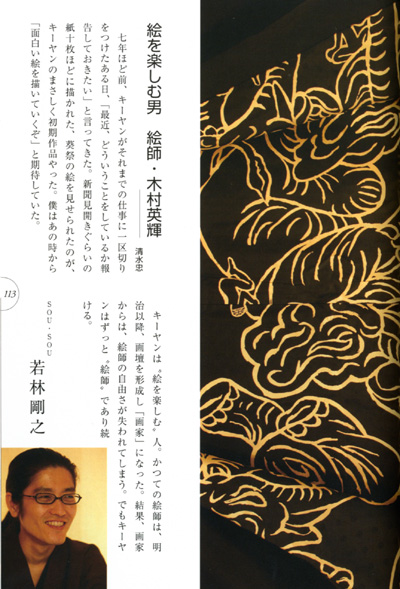 絵を楽しむ男　絵師・木村英輝
清水忠
　七年ほど前、キーヤンがそれまでの仕事に一区切り
をつけたある日、「最近、どういうことをしているか報
告しておきたい」と言ってきた。新聞見開きぐらいの
紙十枚ほどに描かれた、葵祭の絵を見せられたのが、
キーヤンのまさしく初期作品やった。僕はあの時から
「面白い絵を描いていくぞ」と期待していた。
　キーヤンは〝絵を楽しむ〟人。かつての絵師は、明
治以降、画壇を形成し「画家」になった。結果、画家
からは、絵師の自由さが失われてしまう。でもキーヤ
ンはずっと〝絵師〟であり続
ける。
SOU・SOU
若林剛之
113